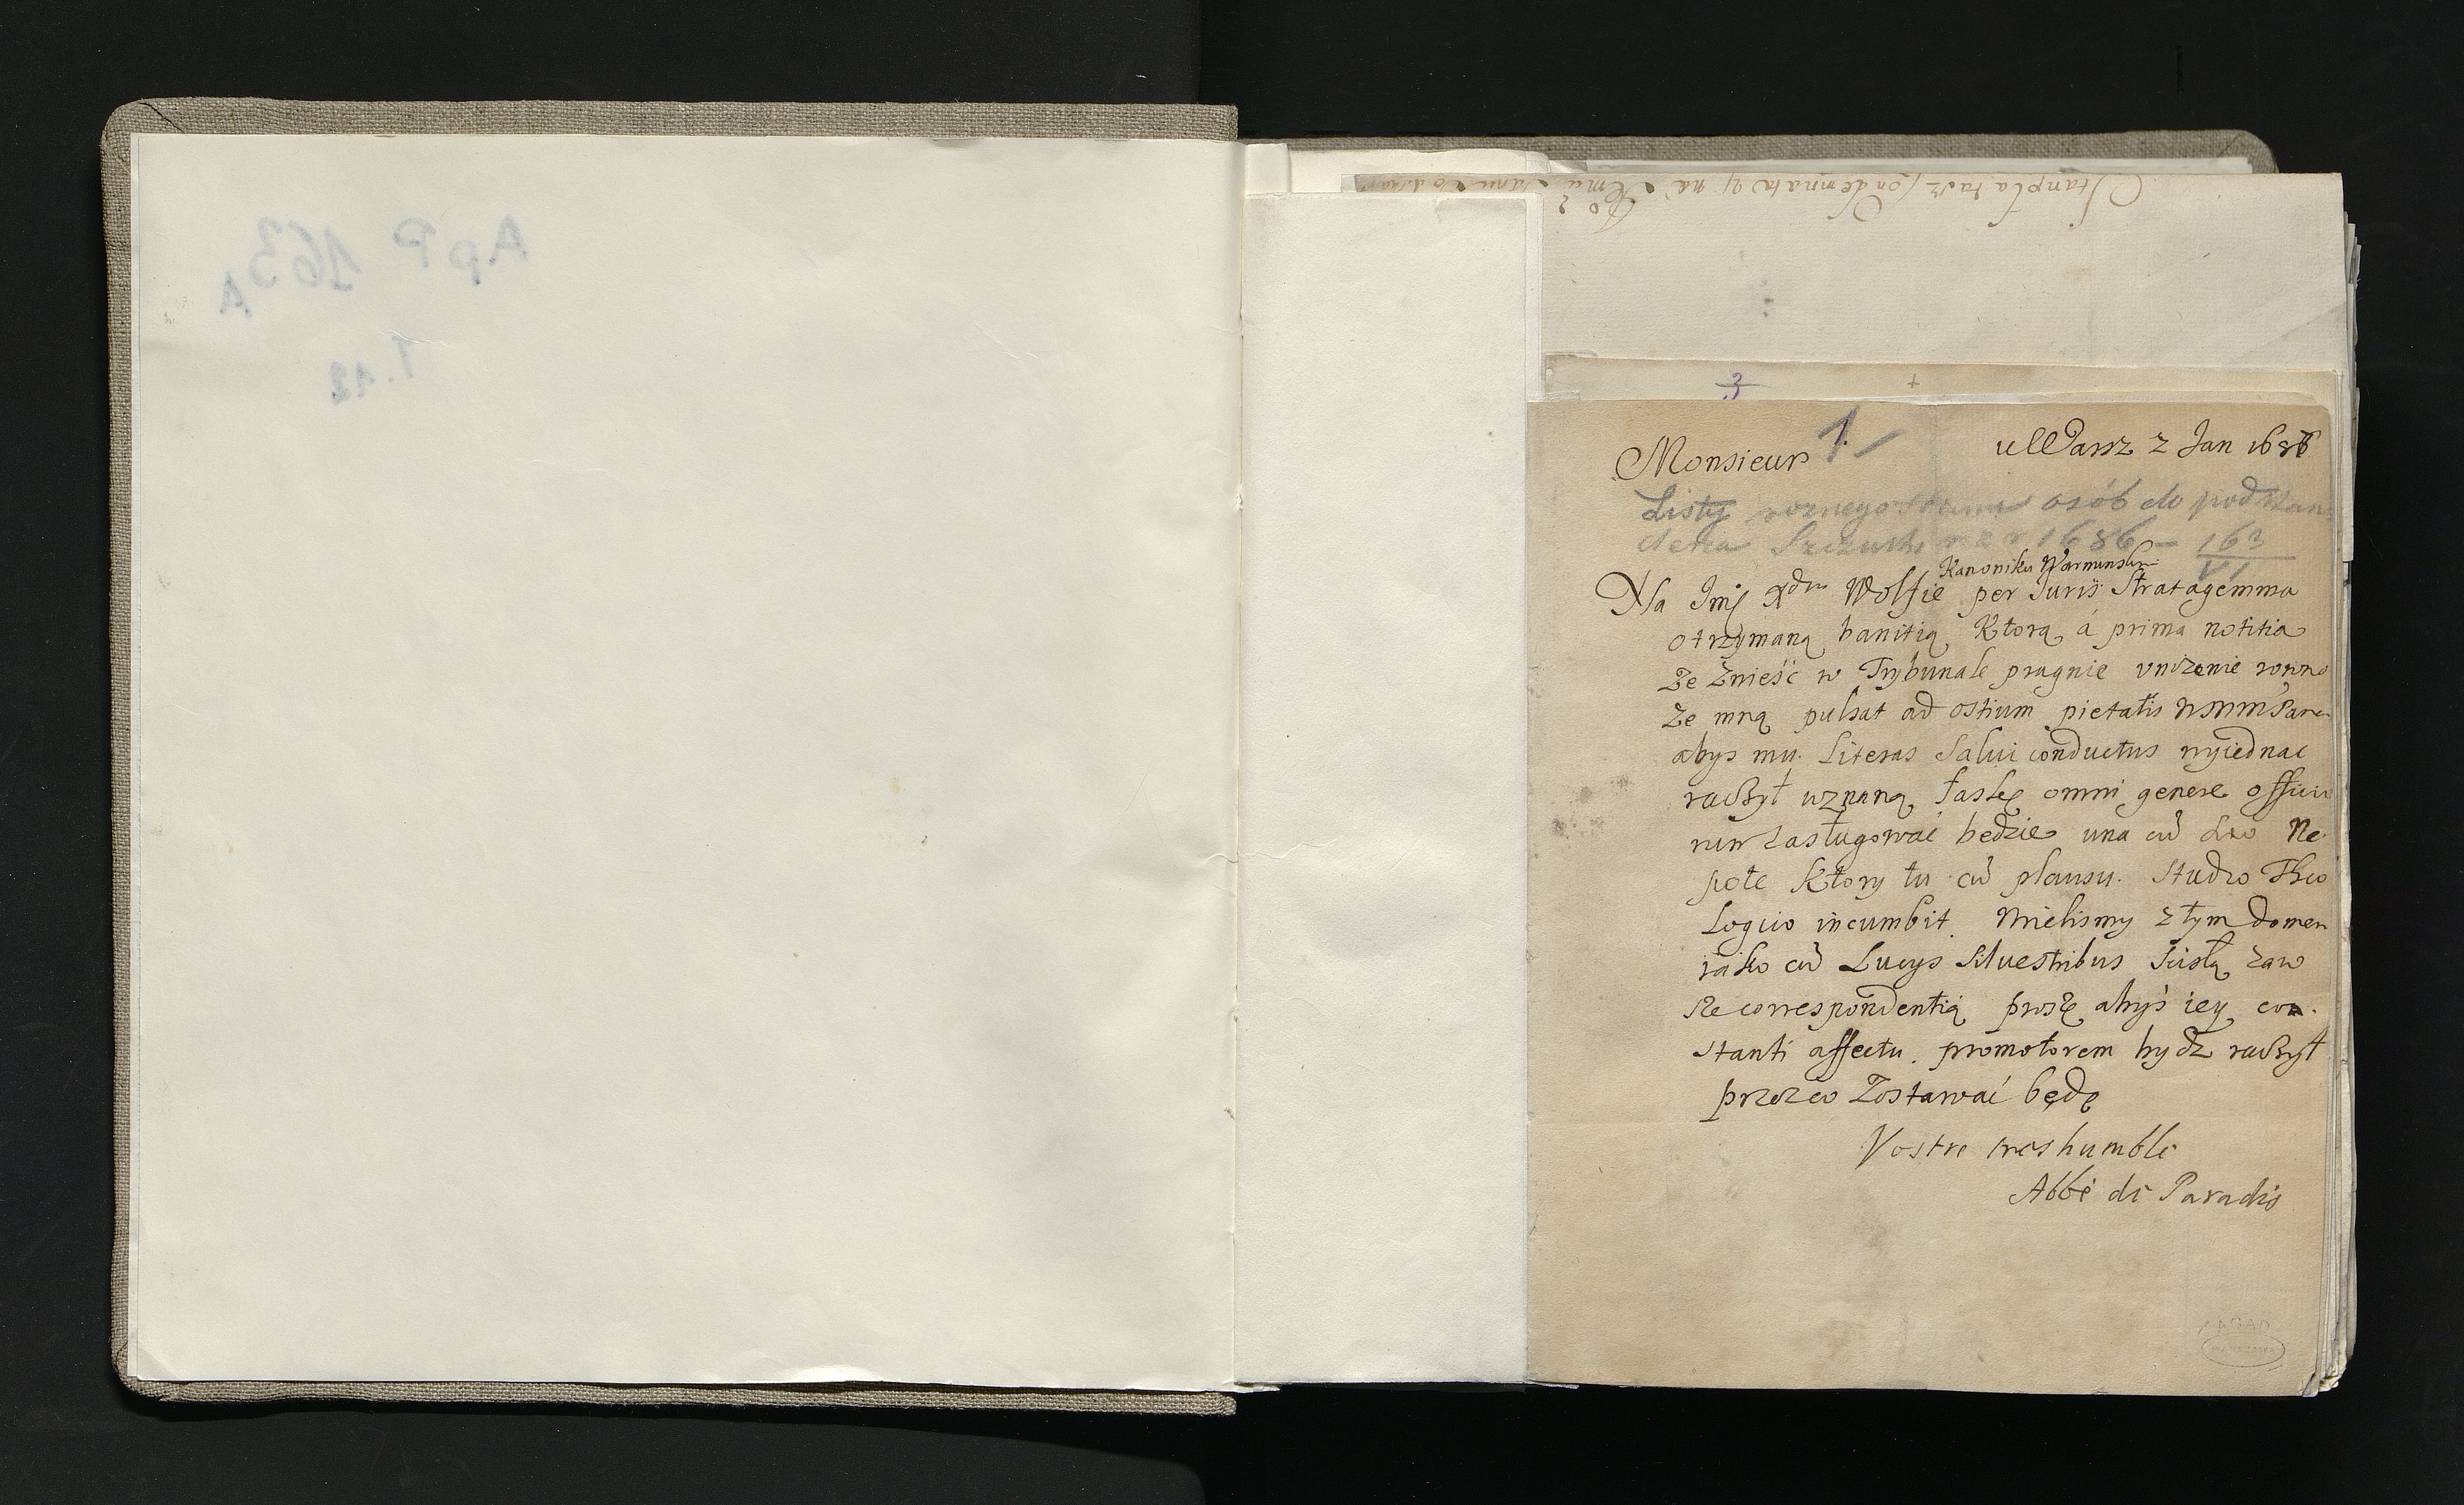 ApP 163A
T. 12
3
1.
Monsieur
uWarsz 2 Jan 1686
Listy roznego stanu osób do podkan
clerza Szczuki z r 1686 – 163
VI
Kanoniku Warminskim
Na Imę Xdzu Wolfie per Juris Stratagemma
otrzymaną banitią Ktorą á prima notitia
ze znieść w Trybunale pragnie unizenie rowno
ze mną pulsat ad ostium pietatis WMMPana
abys mu Literas Salui conductus wyiednac
raczył uznaną łaskę omni genere officio
rum zasługowac będzie una cũ suo Ne
pote Ktory tu cũ plausu Studio Theo
logico incumbit. Mielismy z tym domem
iako cũ Lucys Siluestribus ścisłą zaw
sze correspondentią proszę abyś iey con
stanti affectu promotorem bydz raczył
przezco Zostawać będę
Vostre treshumble
Abbé de Paradis
AGAD
WARSZAWA